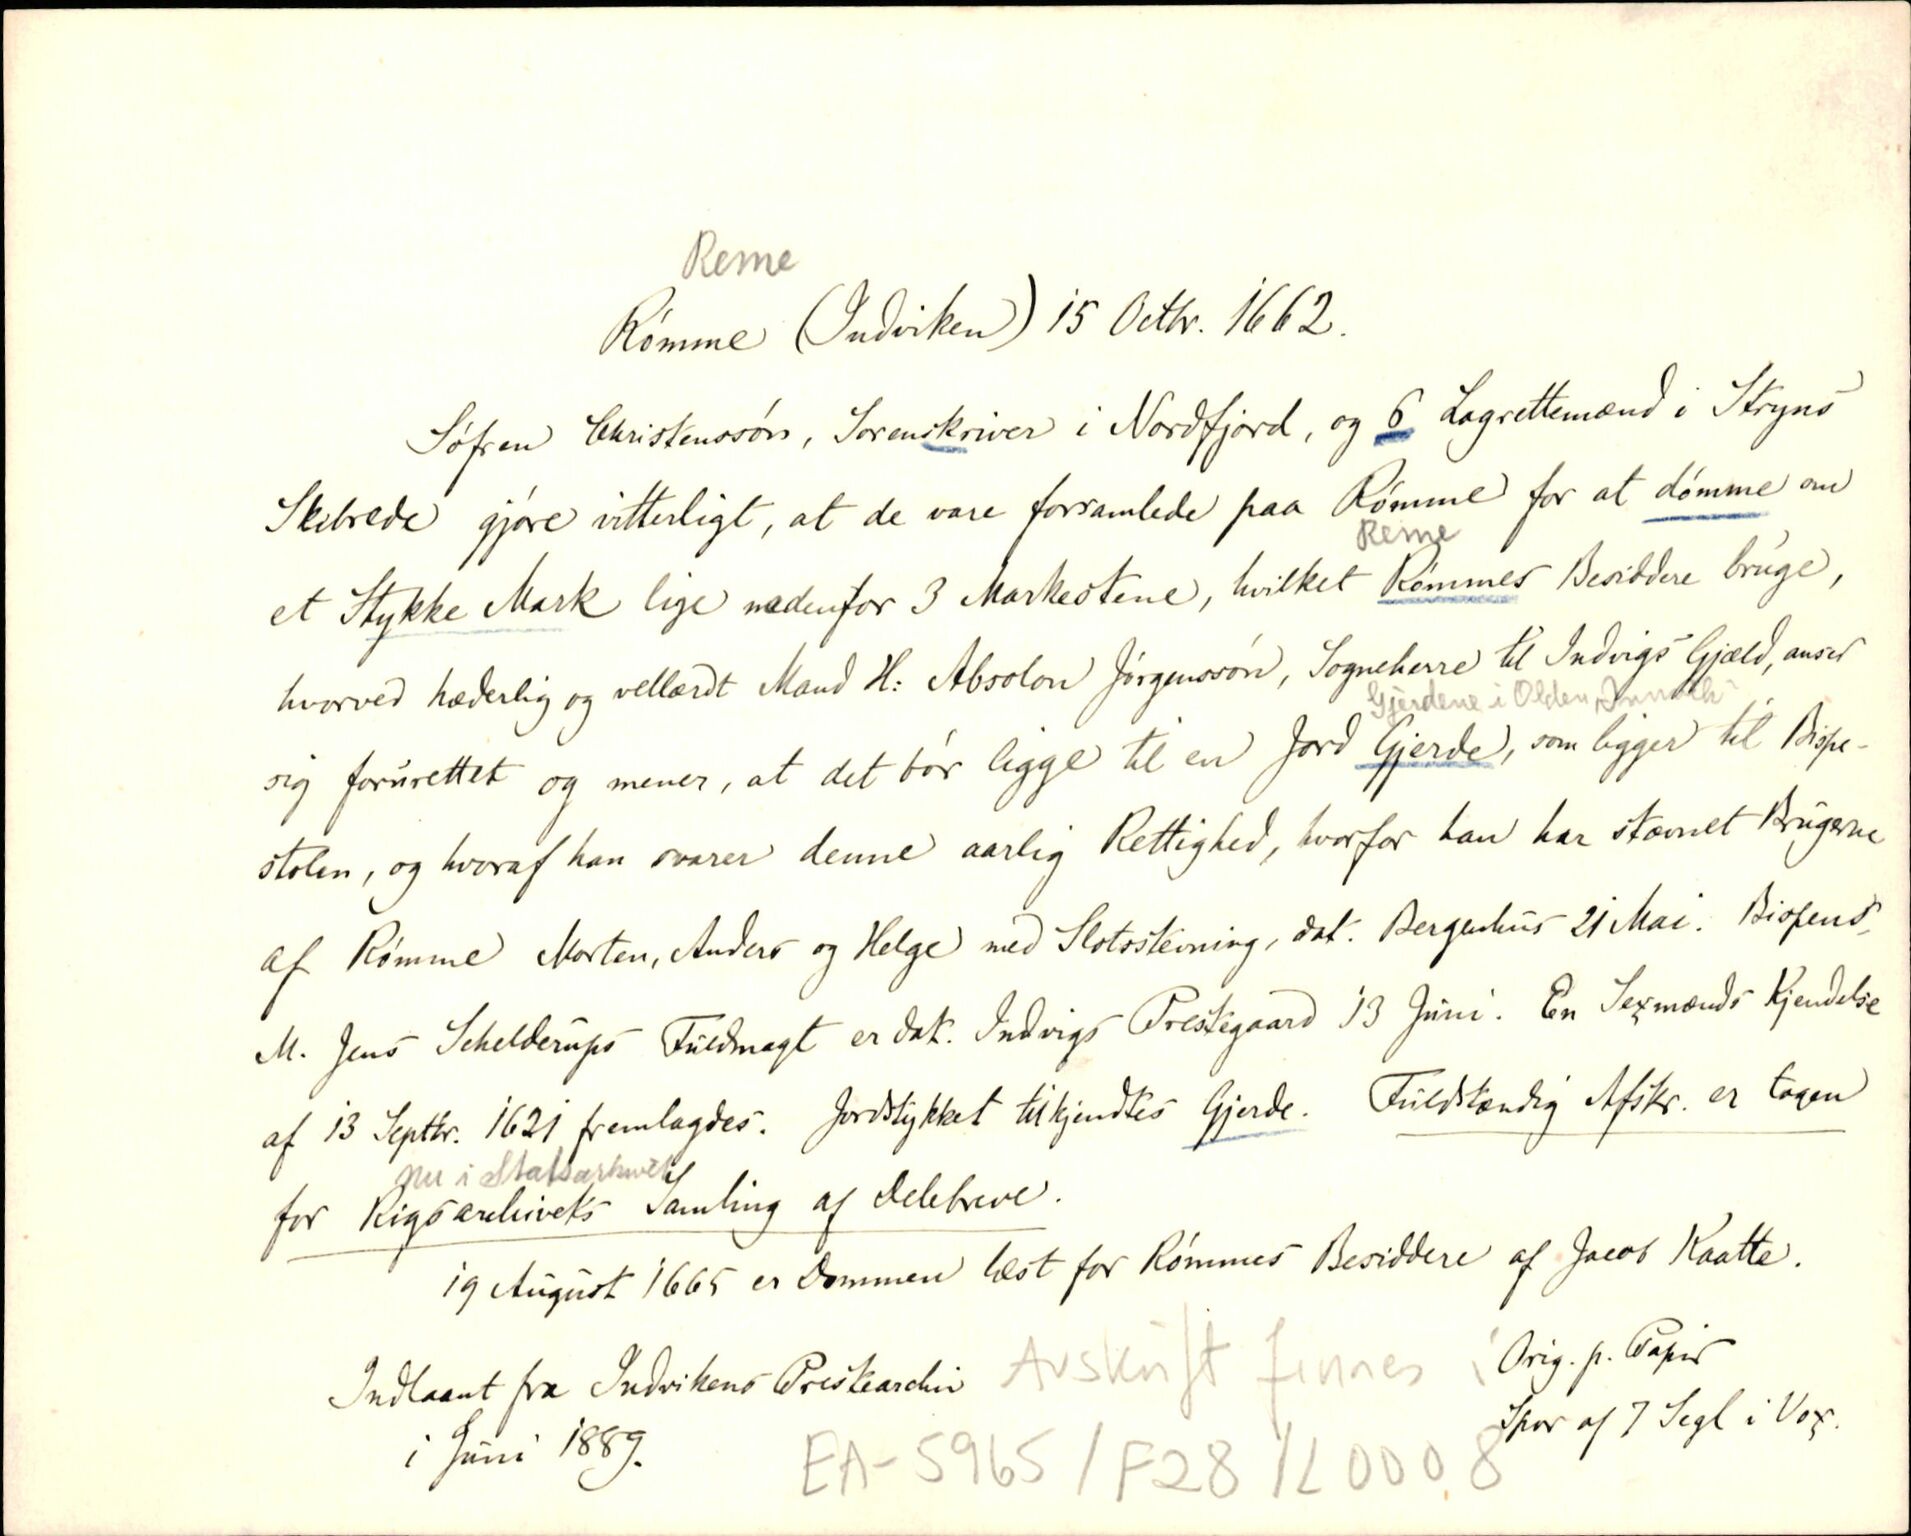 Reme
Rømme (Indviken) 15 Octbr. 1662.
Søfren Christenssøn, Sorenskriver i Nordfjord, og 6 Lagrettemænd i Stryns
Skibrede gjøre vitterligt, at de vare forsamlede paa Rømme for at dømme om
Reme
et Stykke Mark lige nedenfor 3 Markestene, hvilket Rømmes Besiddere bruge,
hvorved hæderlig og vellærdt Mand H: Absolon Jørgenssøn, Sogneherre til Indvigs Gjæld, anser
Gjerdene i Olden,
sig forurettet og mener, at det bør ligge til en Jord Gjerde, som ligger til Bispe-
stolen, og hvoraf han svarer denne aarlig Rettighed, hvorfor han har stævnet Brugerne
af Rømme Morten, Anders og Helge med Slotsstevning, dat. Bergenhus 21 Mai. Bispens
M. Jens Schelderups Fuldmagt er dat. Indvigs Prestegaard 13 Juni. En Sexmænds Kjendelse
af 13 Septbr. 1621 fremlagdes. Jordstykket tilkjendtes Gjerde. Fuldstændig Afskr. er tagen
nu i Statsarkivet
for Rigsarchivets Samling af Delebreve.
19 August 1665 er Dommen læst for Rømmes Besiddere af Jacob Kaatte.
Indlaant fra Indvikens Prestearchiv
i Juni 1889.
Orig. p. Papir
Spor af 7 Segl i Vox.
Avskrift finnes i
EA-5965/F28/L0008